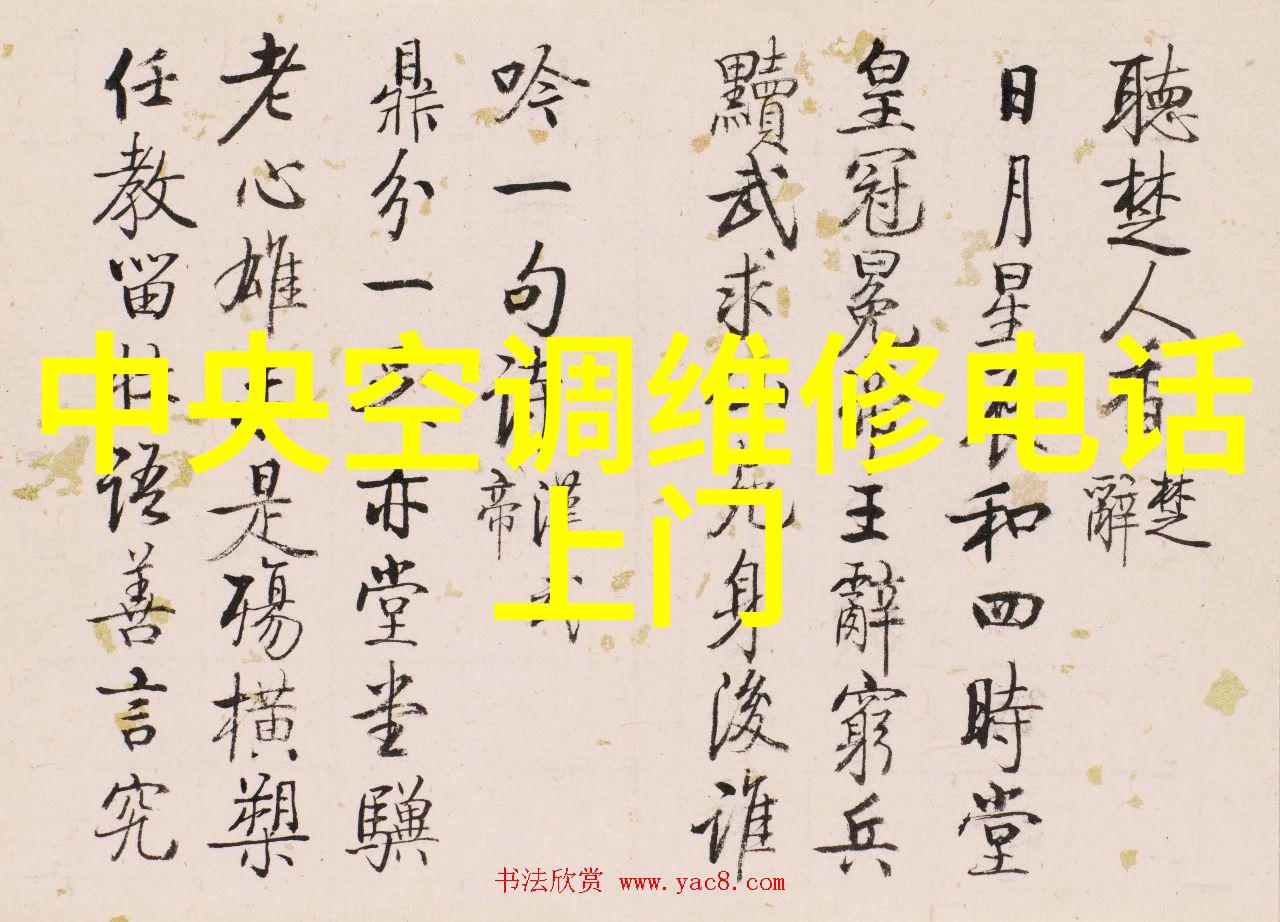 聽楚人
楚辭
日月星辰和四時堂
皇冠冕王辭窮兵
黷武求身後誰
吟一句詩
漢武帝
鼎分一亦堂堂驥
老心雄是殤橫槊
任教留壯語善言究
中央空调维修电话
上门
书法欣赏 www.yac8.com